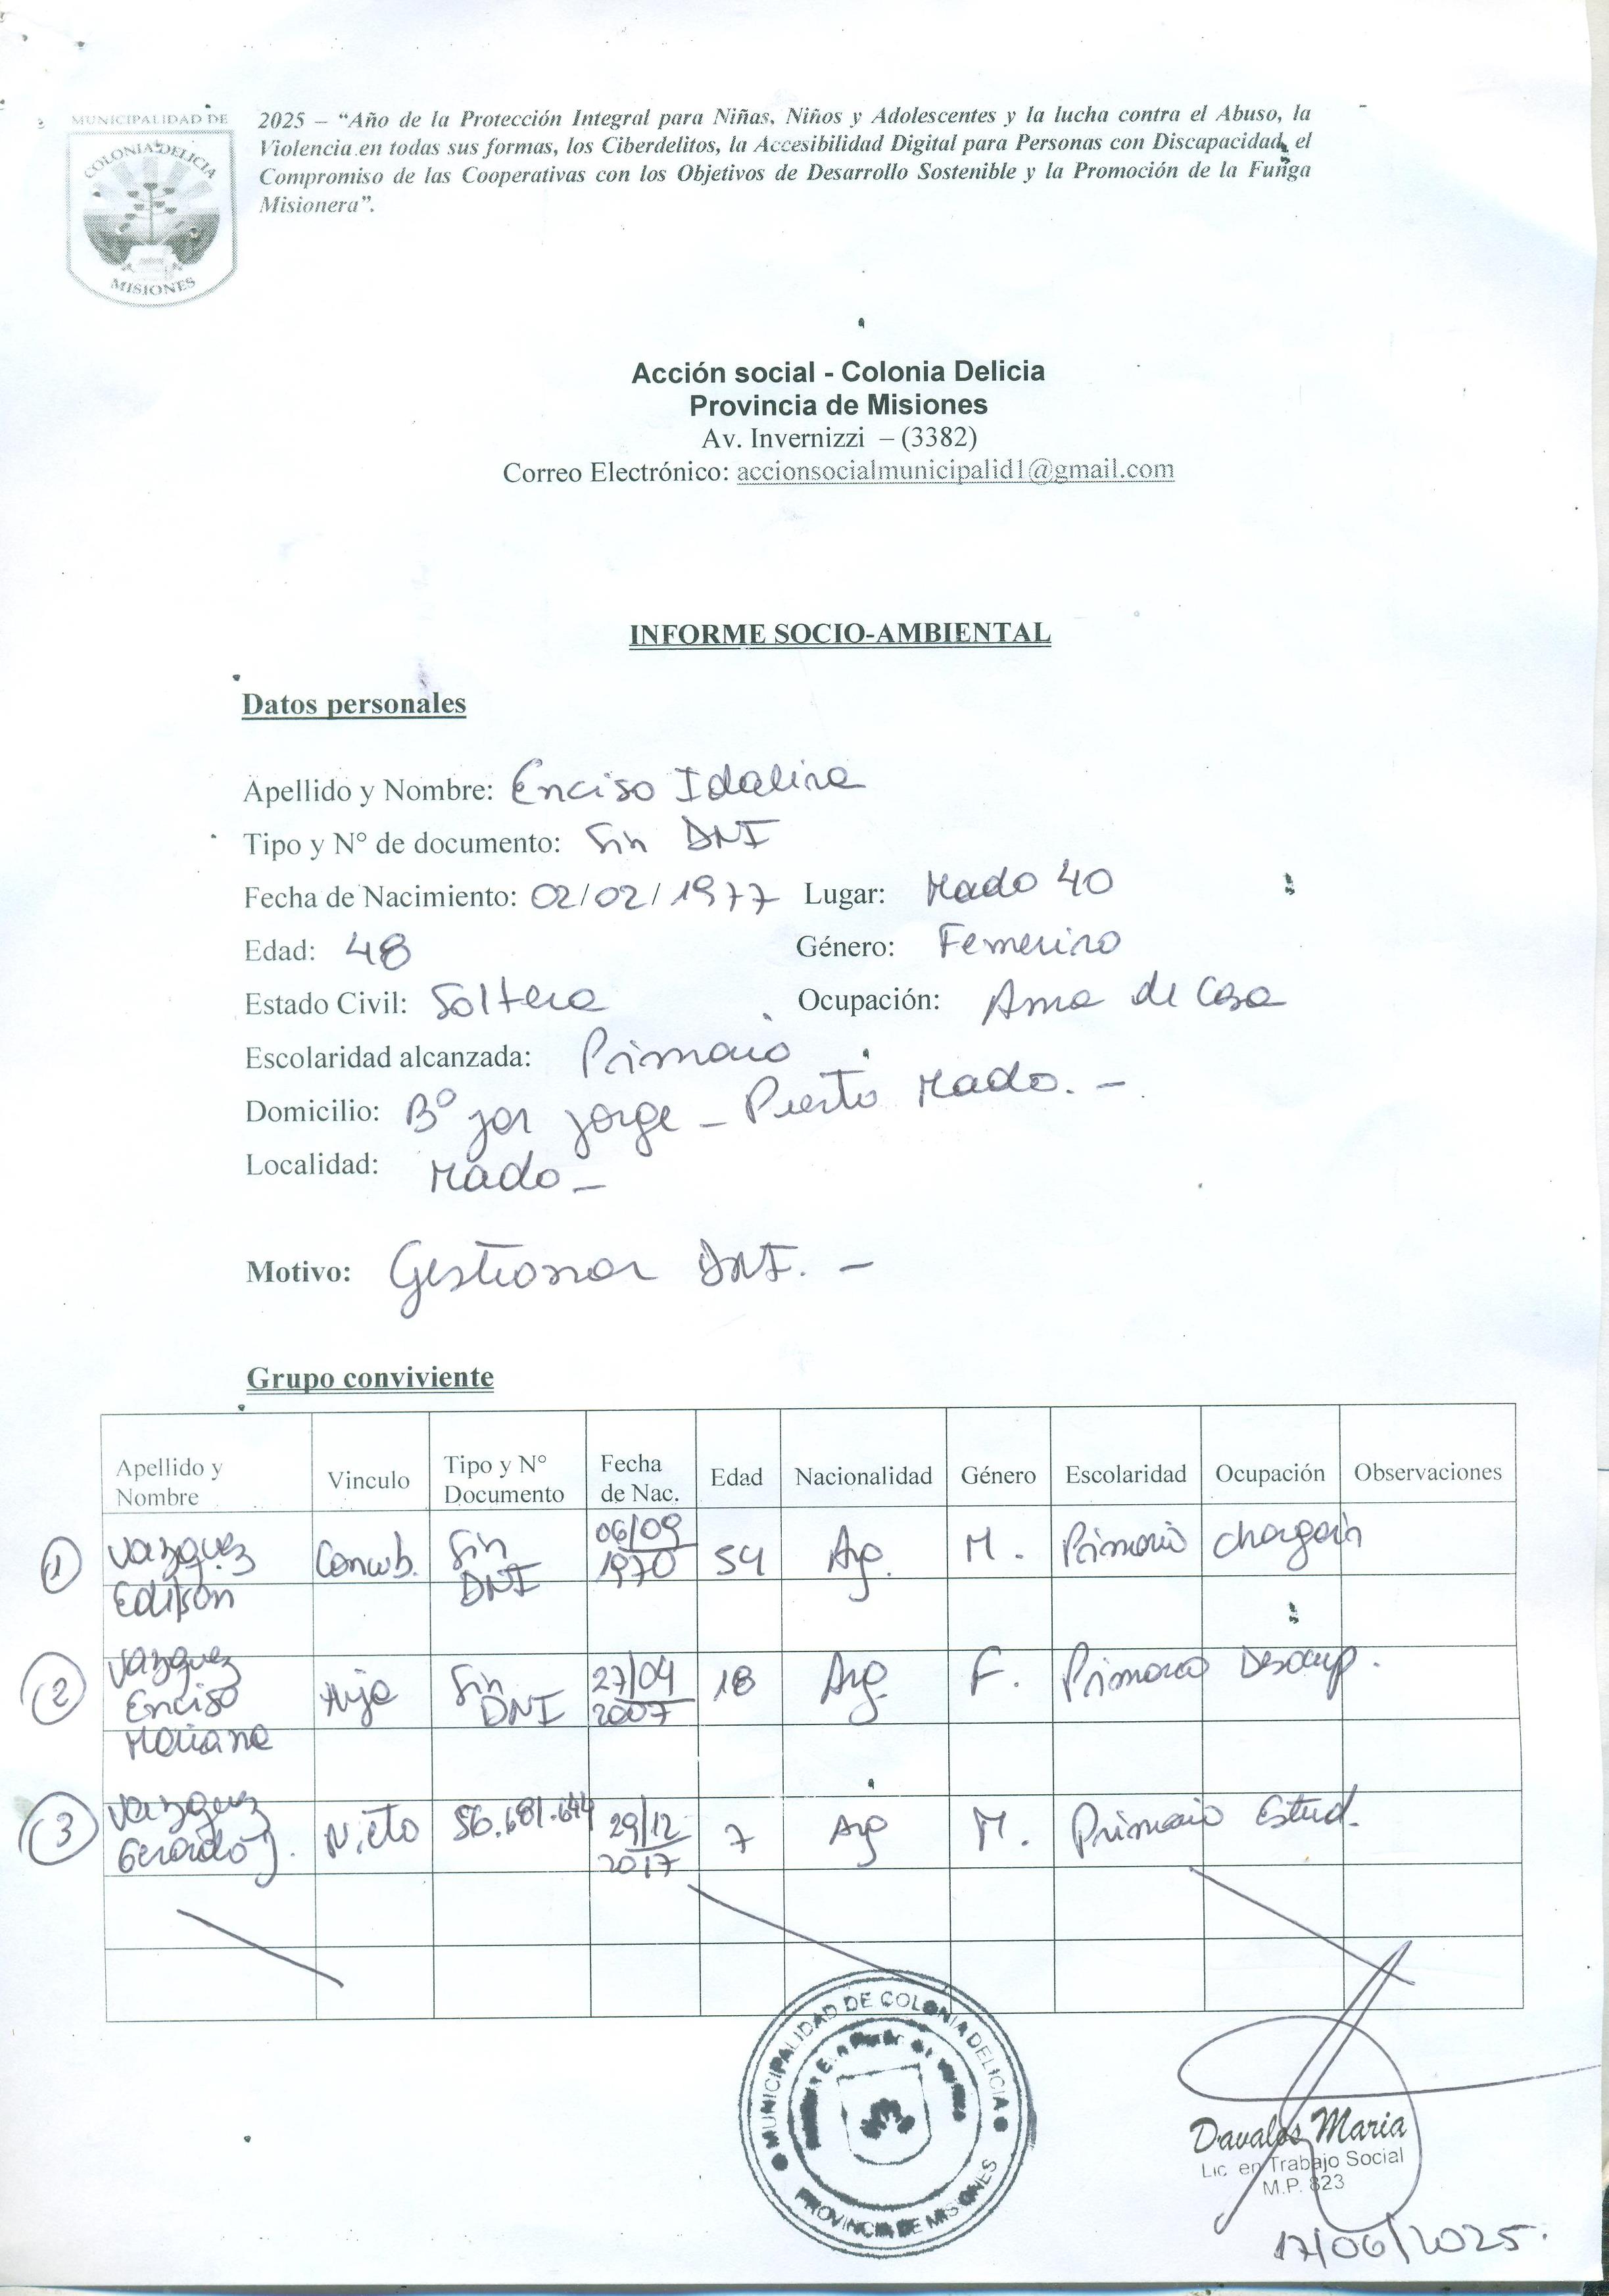 MUNICIPALIDAD DE
COLONIA DELICIA
MISIONES
2025 – “Año de la Protección Integral para Niñas, Niños y Adolescentes y la lucha contra el Abuso, la
Violencia en todas sus formas, los Ciberdelitos, la Accesibilidad Digital para Personas con Discapacidad, el
Compromiso de las Cooperativas con los Objetivos de Desarrollo Sostenible y la Promoción de la Funga
Misionera”.
Acción social - Colonia Delicia
Provincia de Misiones
Av. Invernizzi – (3382)
Correo Electrónico: accionsocialmunicipalid1@gmail.com
INFORME SOCIO-AMBIENTAL
Datos personales
Apellido y Nombre: Enciso Idalina
Tipo y N° de documento: Sin DNI
Fecha de Nacimiento: 02/02/1977 Lugar: Mado 40
Edad: 48 Género: Femenino
Estado Civil: Soltera Ocupación: Ama de Casa
Escolaridad alcanzada: Primario
Domicilio: B° jorge – Puerto Mado. –
Localidad: Mado –
Motivo: Gestionar DNI. –
Grupo conviviente
Apellido y Nombre Vinculo Tipo y N° Documento Fecha de Nac. Edad Nacionalidad Género Escolaridad Ocupación Observaciones
1 Vazquez Edilson Concub. Sin DNI 06/09 1970 54 Arg. M. Primario
2 Vazquez Enciso Mariana Hija Sin DNI 27/04 2007 18 Arg. F. Primario Desocup.
3 Vazquez Gerardo J. Nieto 56.681.644 29/12 2017 7 Arg M. Primario Estud.
MUNICIPALIDAD DE COLONIA DELICIA
PROVINCIA DE MISIONES
Davalos Maria
Lic en Trabajo Social
M.P. 823
17/06/2025.